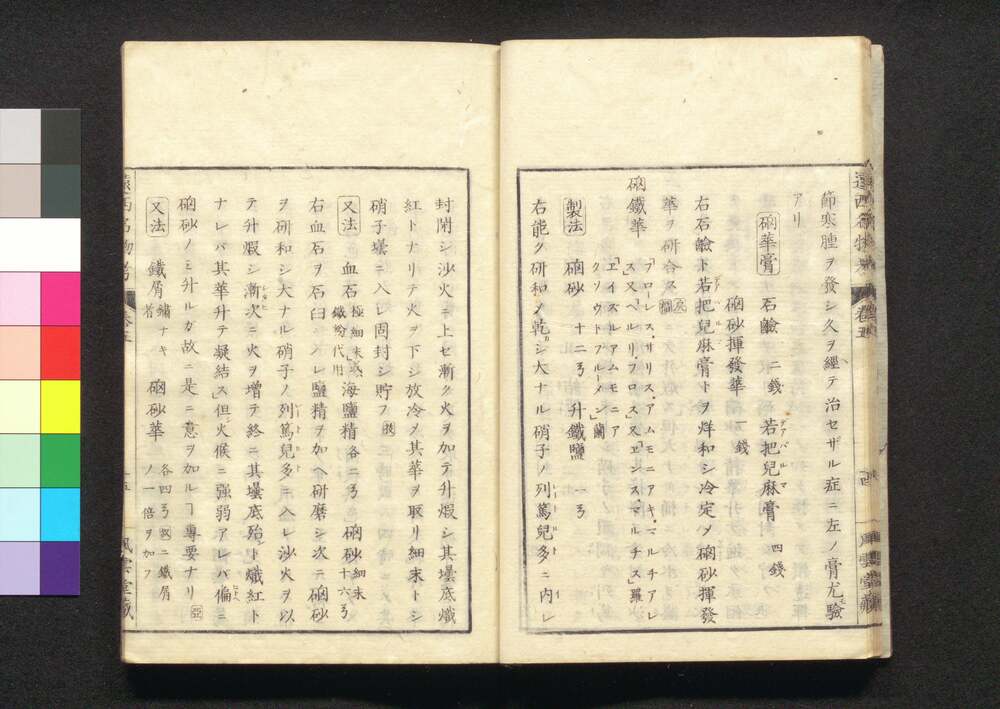 節寒腫ヲ發シ久ヲ經テ治セザル症ニ左ノ膏尤驗
アリ
硇華膏 石鹼 二錢 若把兒麻膏 四錢
硇砂揮發華 一錢
右石鹼ト若把兒麻膏トヲ烊和シ冷定メ硇砂揮發
華ヲ研合ス
硇鐵華
「フローレス、サリス、アムモニアキ、マルチアレ
ス」又「ヘルリ、フロレス」又「エンス、マルチス」羅
「エイズルアアムモニア
クソウトブルーメン」蘭
製法 硇砂 十二㕮 升鐵鹽 一㕮
右能ク研和メ乾シ大ナル硝子ノ列篤兒多ニ内レ
封閉シ沙火ニ上セ漸ク火ヲ加テ升煆シ其壜底熾
紅トナリテ火ヲ下シ放冷メ其華ヲ取リ細末トシ
硝子壜ニ入レ固封シ貯フ
又法 血石 極細末或鐵粉代用 海鹽精 各二㕮 硇砂 細末十六㕮
右血石ヲ石臼ニ入レ鹽精ヲ加ヘ研磨シ次ニ硇砂
ヲ研和シ大ナル硝子ノ列篤兒多ニ入レ沙火ヲ以
テ升煆シ漸次ニ火ヲ增テ終ニ其壜底殆ト熾紅ト
ナレバ其華升テ凝結ス但火候ニ强弱アレバ偏ニ
硇砂ノミ升ルガ故ニ是ニ意ヲ加ルヿ專要ナリ
又法 鐵屑 鏽ナキ者 硇砂華 各四㕮 鐵屑ノ一倍ヲ加フ
遠西名物考 卷五
十五 風雲堂藏